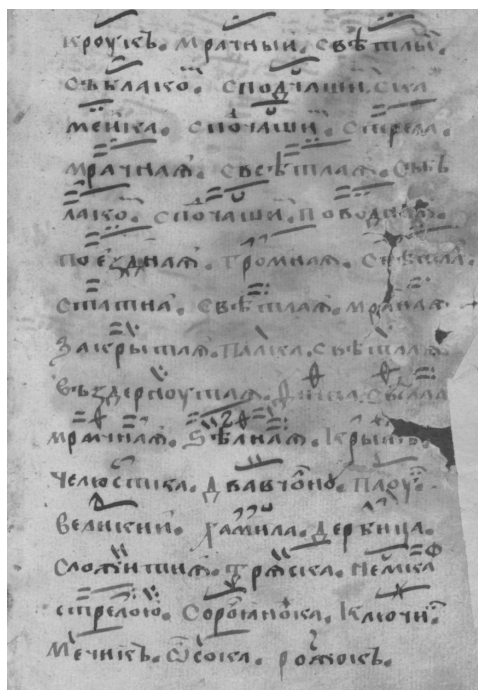 кроукъ. мрачныи. свѣтлы.
съѡблако. сподчаши. ска
меика. спочаши. стрела.
мрачнаѧ. свѣтлаѧ. съѡб
лако. спочаши. поводнаѧ.
поездднаѧ. громнаѧ. свѣтлаѧ.
статна. свѣтлаѧ. мрачнаѧ
закрытаѧ. палка. свѣтлаѧ
въздерноутаѧ.
мрачнаѧ. ѕѣлнаѧ. крыжъ.
челюстка. двавчоно. паоу.
великии. хамила. дербица.
сложитиѧ. трѧска. немка
стрелою. сорочїаножка. ключи.
мечикъ. ѿсока. рожокъ.